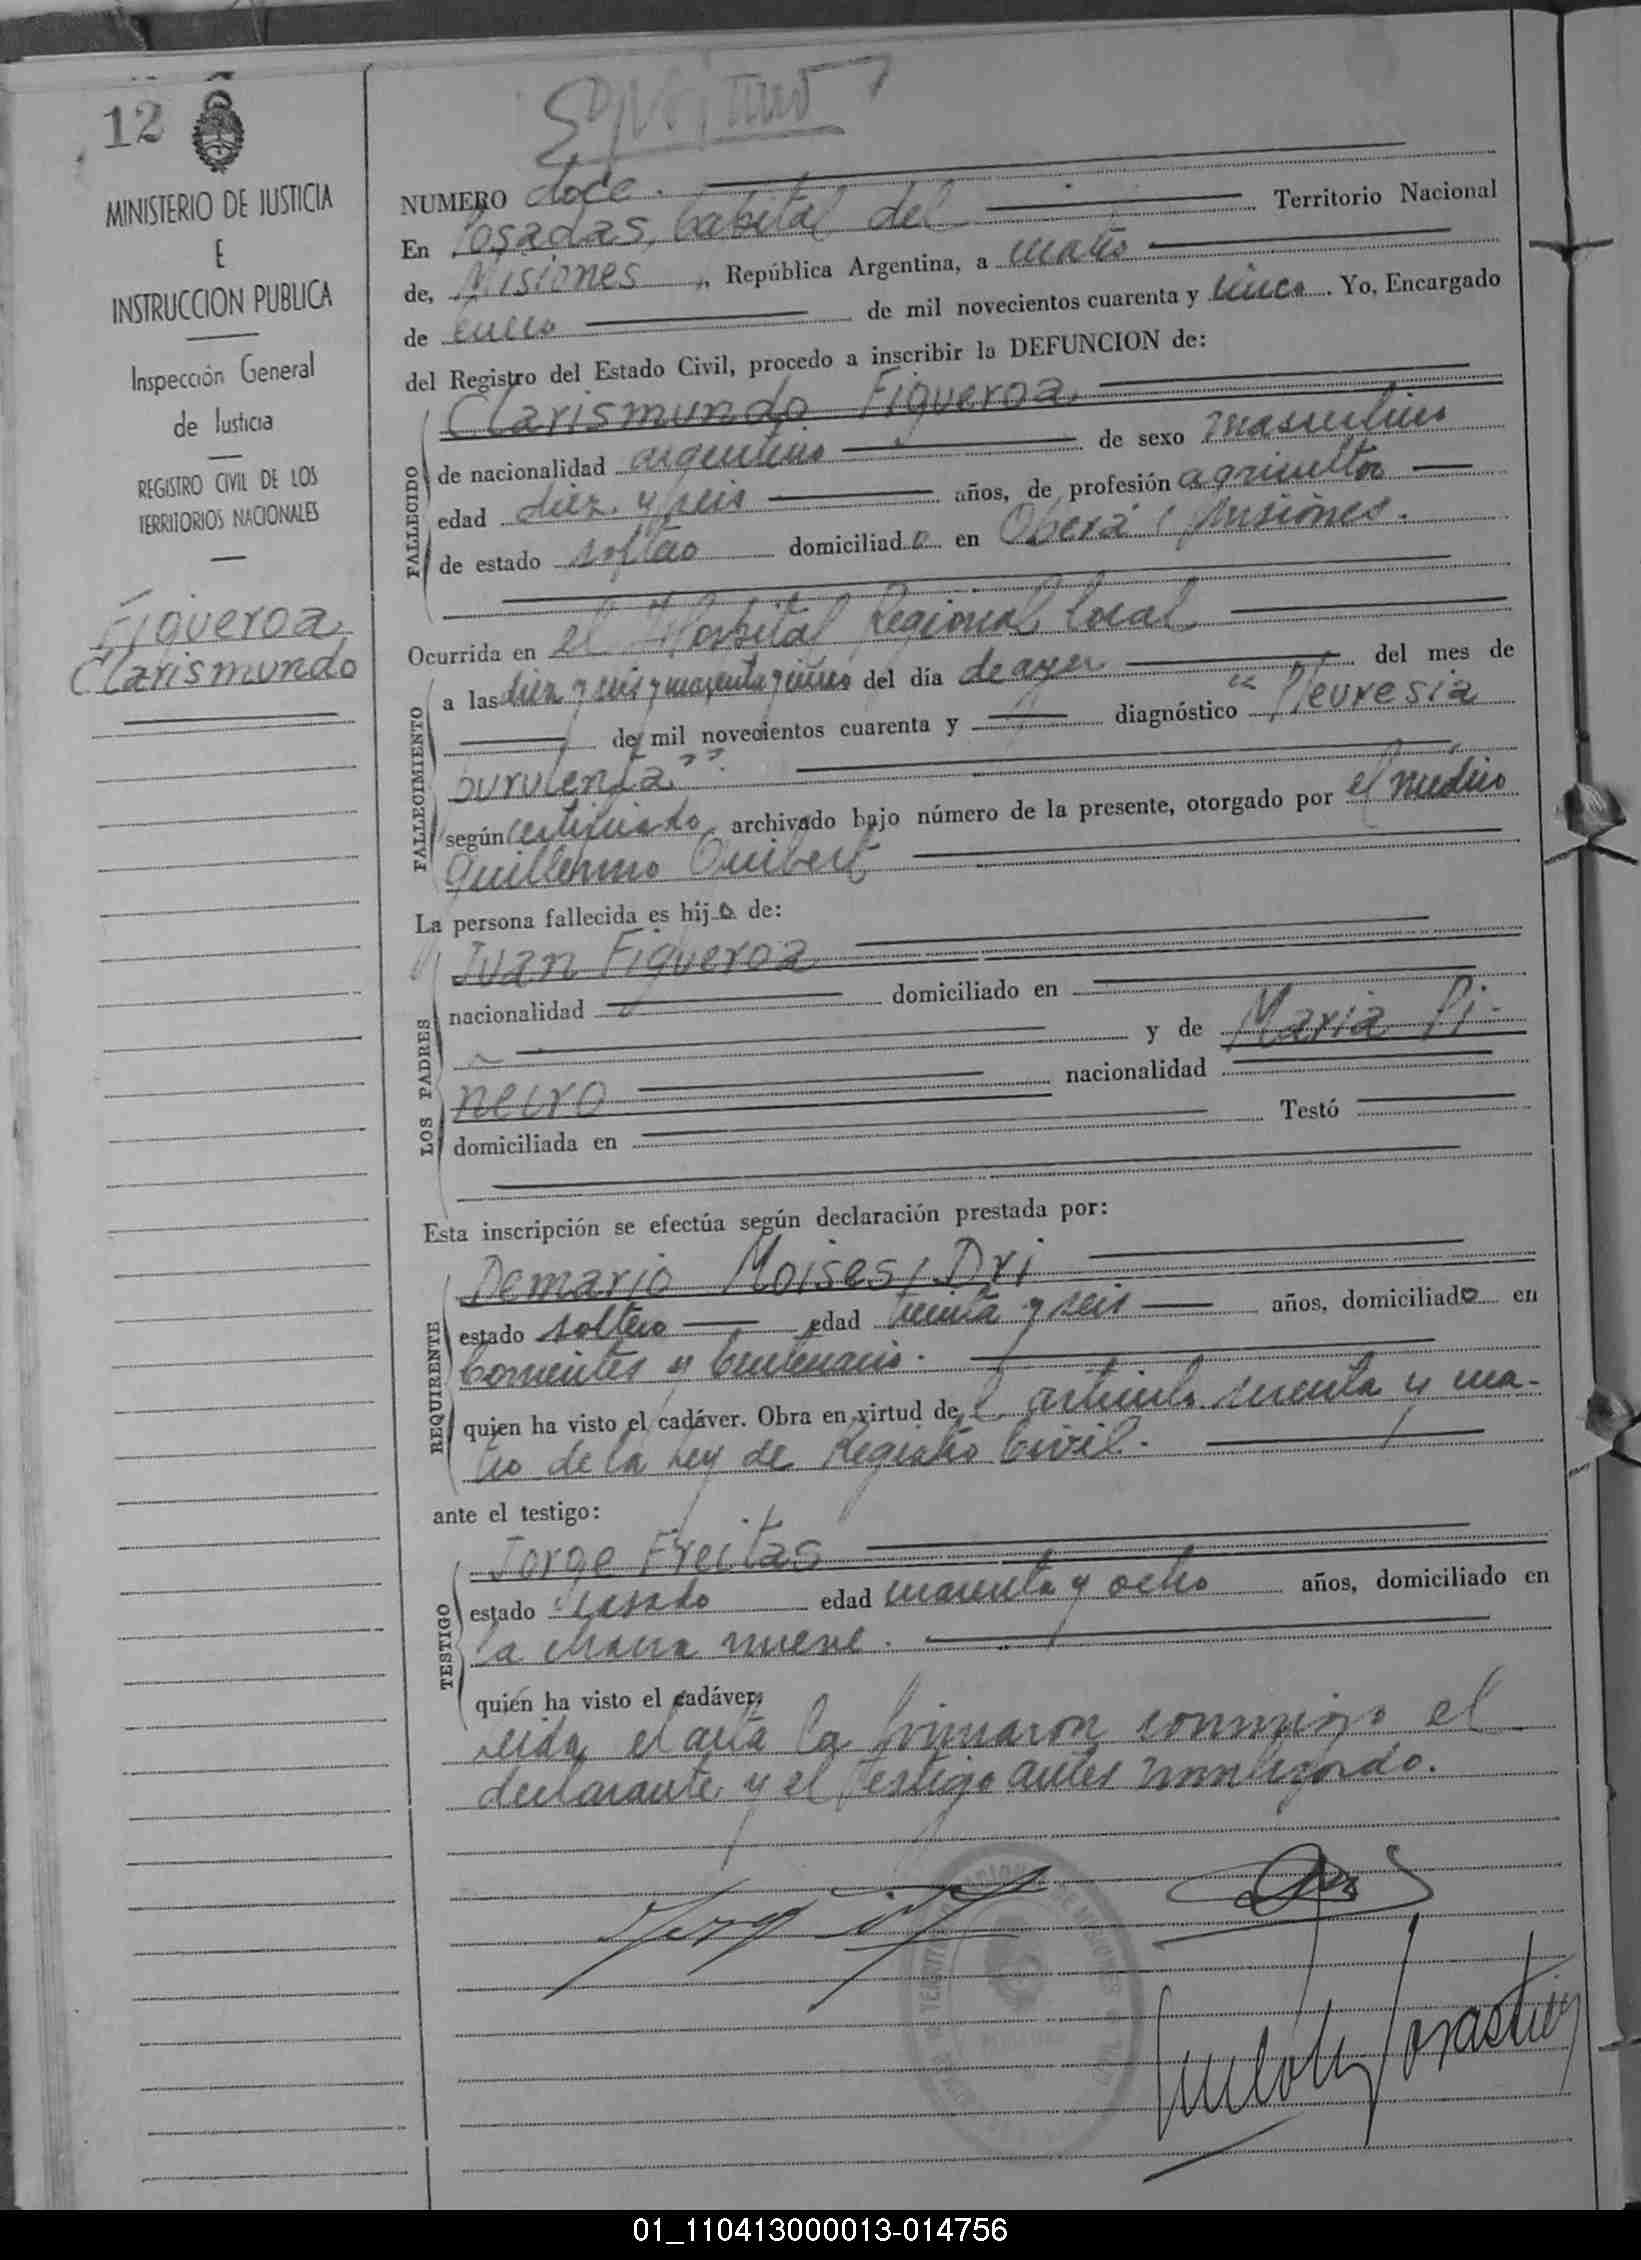 12
MINISTERIO DE JUSTICIA
E
INSTRUCCION PUBLICA
Inspección General
de Justicia
REGISTRO CIVIL DE LOS
TERRITORIOS NACIONALES
Figueroa
Clarismundo
NUMERO doce.
En Posadas, Capital del Territorio Nacional
de, Misiones, República Argentina, a cuatro
de Enero de mil novecientos cuarenta y cinco. Yo, Encargado
del Registro del Estado Civil, procedo a inscribir la DEFUNCION de:
FALLECIDO
Clarismundo Figueroa
de nacionalidad argentino de sexo masculino
edad diez y seis años, de profesión agricultor
de estado soltero domiciliado en Oberá, Misiones.
Ocurrida en el Hospital Regional local
FALLECIMIENTO
a las diez y seis y cuarenta y cinco del día de ayer del mes de
de mil novecientos cuarenta y diagnóstico "Pleuresia
purulenta".
según certificado archivado bajo número de la presente, otorgado por el médico
Guillermo
La persona fallecida es hijo de:
LOS PADRES
Juan Figueroa
nacionalidad domiciliado en
y de Maria Pi-
ñeiro nacionalidad
domiciliada en Testó
Esta inscripción se efectúa según declaración prestada por:
REQUIRENTE
Demario Moises, Dri
estado soltero edad treinta y seis años, domiciliado en
Corrientes y Centenario.
quien ha visto el cadáver. Obra en virtud del artículo sesenta y cua-
tro de la Ley de Registro Civil.
ante el testigo:
TESTIGO
Jorge Freitas
estado casado edad cuarenta y ocho años, domiciliado en
la chacra nueve.
quién ha visto el cadáver,
leida el acta la firmaron conmigo el
declarante y el testigo antes
01_110413000013-014756